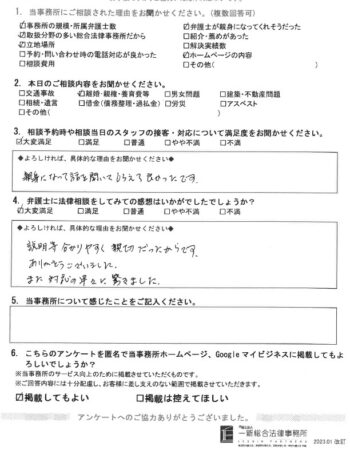 1. 当事務所にご相談された理由をお聞かせください。(複数回答可)
☑事務所の規模・所属弁護士数 ☑弁護士が親身になってくれそうだった
☑取扱分野の多い総合法律事務所だから □紹介・薦めがあった
☑立地場所 □解決実績数
□予約・問い合わせ時の電話対応が良かった ☑ホームページの内容
□相談費用 □その他( )
2. 本日のご相談内容をお聞かせください。
□交通事故 ☑離婚・親権・養育費等 □男女問題 □建築・不動産問題
□相続・遺言 □借金(債務整理・過払金) □労災 □アスベスト
□その他( )
3. 相談予約時や相談当日のスタッフの接客・対応について満足度をお聞かせください。
☑大変満足 □満足 □普通 □やや不満 □不満
◆よろしければ、具体的な理由をお聞かせください◆
親身になって話を聞いてもらえて良かったです。
4. 弁護士に法律相談をしてみての感想はいかがでしたでしょうか?
☑大変満足 □満足 □普通 □やや不満 □不満
◆よろしければ、具体的な理由をお聞かせください◆
説明等分かりやすく親切だったからです。
ありがとうございました。
また対応の早さに驚きました。
5. 当事務所について感じたことをご記入ください。
6. こちらのアンケートを匿名で当事務所ホームページ、Google マイビジネスに掲載してもよ
ろしいでしょうか?
※当事務所のサービス向上のために掲載させていただくものです。
※ご回答内容には十分配慮し、お客様に差し支えのない範囲で掲載させていただきます。
☑掲載してもよい □掲載は控えてほしい
アンケートへのご協力ありがとうございました。
一新総合法律事務所
2023.01 改訂